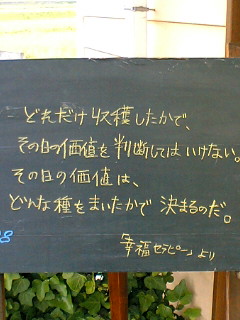 どれだけ収穫したかで、
その日の価値を判断してはいけない。
その日の価値は、
どんな種をまいたかで決まるのだ。
幸福セラピー より